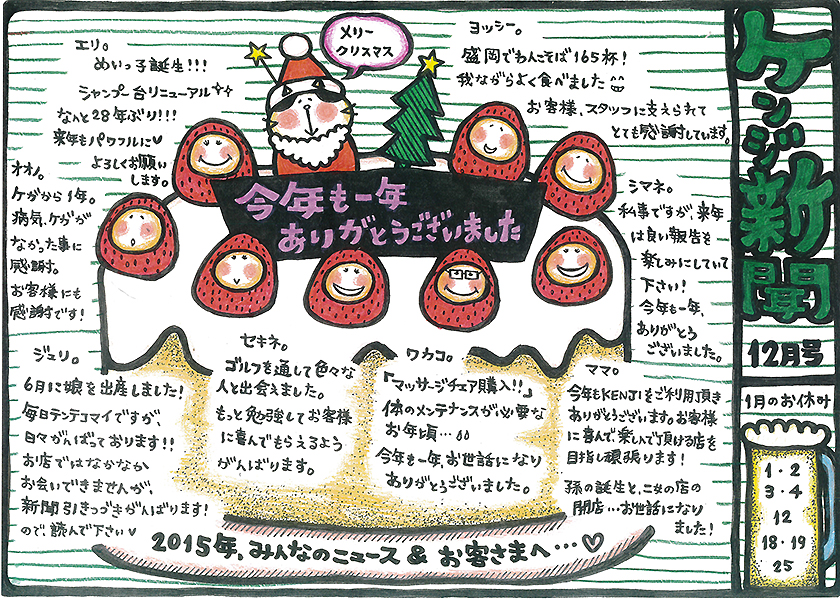 ケンジ新聞
12月号
1月のお休み
1・2
3・4
12
18・19
25
メリー
クリスマス
今年も一年
ありがとうございました
エリ。
めいっ子誕生!!!
シャンプー台リニューアル
なんと28年ぶり!!!
来年もパワフルに♡
よろしくお願い
します。
ヨッシー。
盛岡でわんこそば165杯!
我ながらよく食べました
お客様、スタッフに支えられて
とても感謝しています。
オオノ。
ケガから1年。
病気、ケガが
なかった事に
感謝。
お客様にも
感謝です!
シマネ。
私事ですが、来年
は良い報告を
楽しみにしていて
下さい!
今年も一年、
ありがとう
ございました。
ジュリ。
6月に娘を出産しました!
毎日テンテコマイですが、
日々がんばっております!!
お店ではなかなか
お会いできませんが、
新聞引きつづきがんばります!
ので、読んで下さい♡
セキネ。
ゴルフを通して色々な
人と出会えました。
もっと勉強してお客様
に喜んでもらえるよう
がんばります。
ワカコ。
「マッサージチェア購入!!」
体のメンテナンスが必要な
お年頃…
今年も一年、お世話になり
ありがとうございました。
ママ。
今年もKENJIをご利用頂き
ありがとうございます。お客様
に喜んで、楽しんで頂ける店を
目指し頑張ります!
孫の誕生と、二女の店の
開店…お世話になり
ました!
2015年、みんなのニュース & お客さまへ…♡